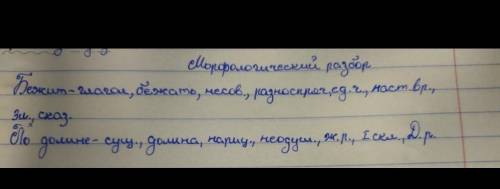 Морфологический разбор
Бежит - глагол, бежать, несов., разноспряг., ед.ч., наст.вр.,
3л., сказ.
По долине - сущ., долина, нариц., неодуш., ж.р., I скл., Д.р.